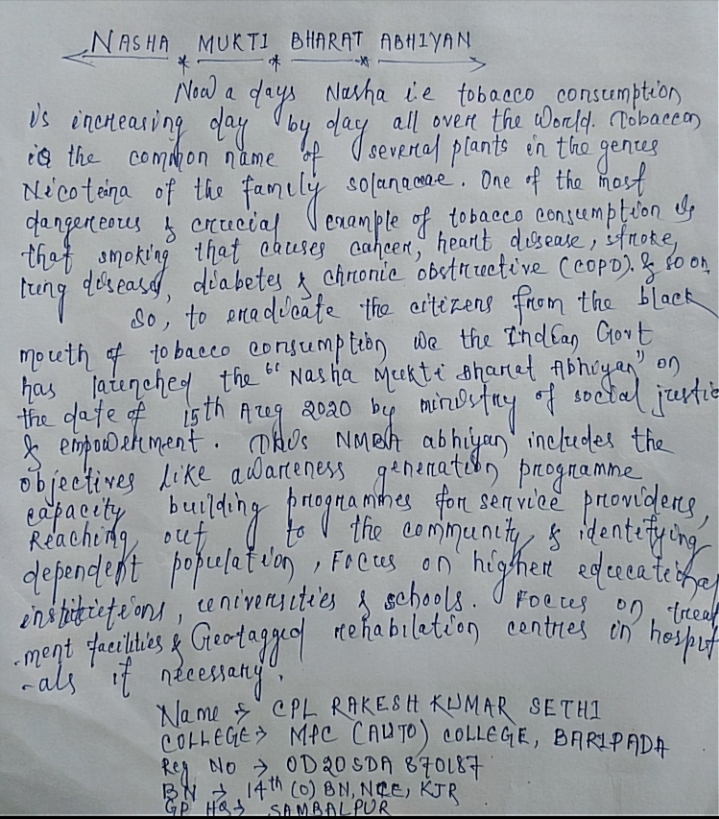 NASHA * MUKTI * BHARAT * ABHIYAN
Now a days Nasha i.e tobacco consumption
is increasing day by day all over the World. Tobacco
is the common name of several plants in the genus
Nicoteina of the family solanacae. One of the most
dangereous & crucial example of tobacco consumption is
that smoking that causes cancer, heart disease, stroke,
lung diseases, diabetes & chronic obstructive (COPD). & so on
So, to eradicate the citizens from the black
mouth of tobacco consumption we the Indian Govt
has launched the "Nasha Mukti Bharat Abhiyan" on
the date of 15th Aug 2020 by ministry of social justic
& empowerment. This NMBA abhiyan includes the
objectives like awareness generation programme
capacity building programmes for service providers,
Reaching out to the community & identifying
dependent population, Focus on higher educational
institutions, universities & schools. Focus on treat
-ment facilities & Geotagged rehabilation centres in hospit
-als if necessary.
Name → CPL RAKESH KUMAR SETHI
COLLEGE → MPC (AUTO) COLLEGE, BARIPADA
Reg No → OD20SDA 870187
BN → 14th (O) BN, NCC, KJR
GP HQ → SAMBALPUR